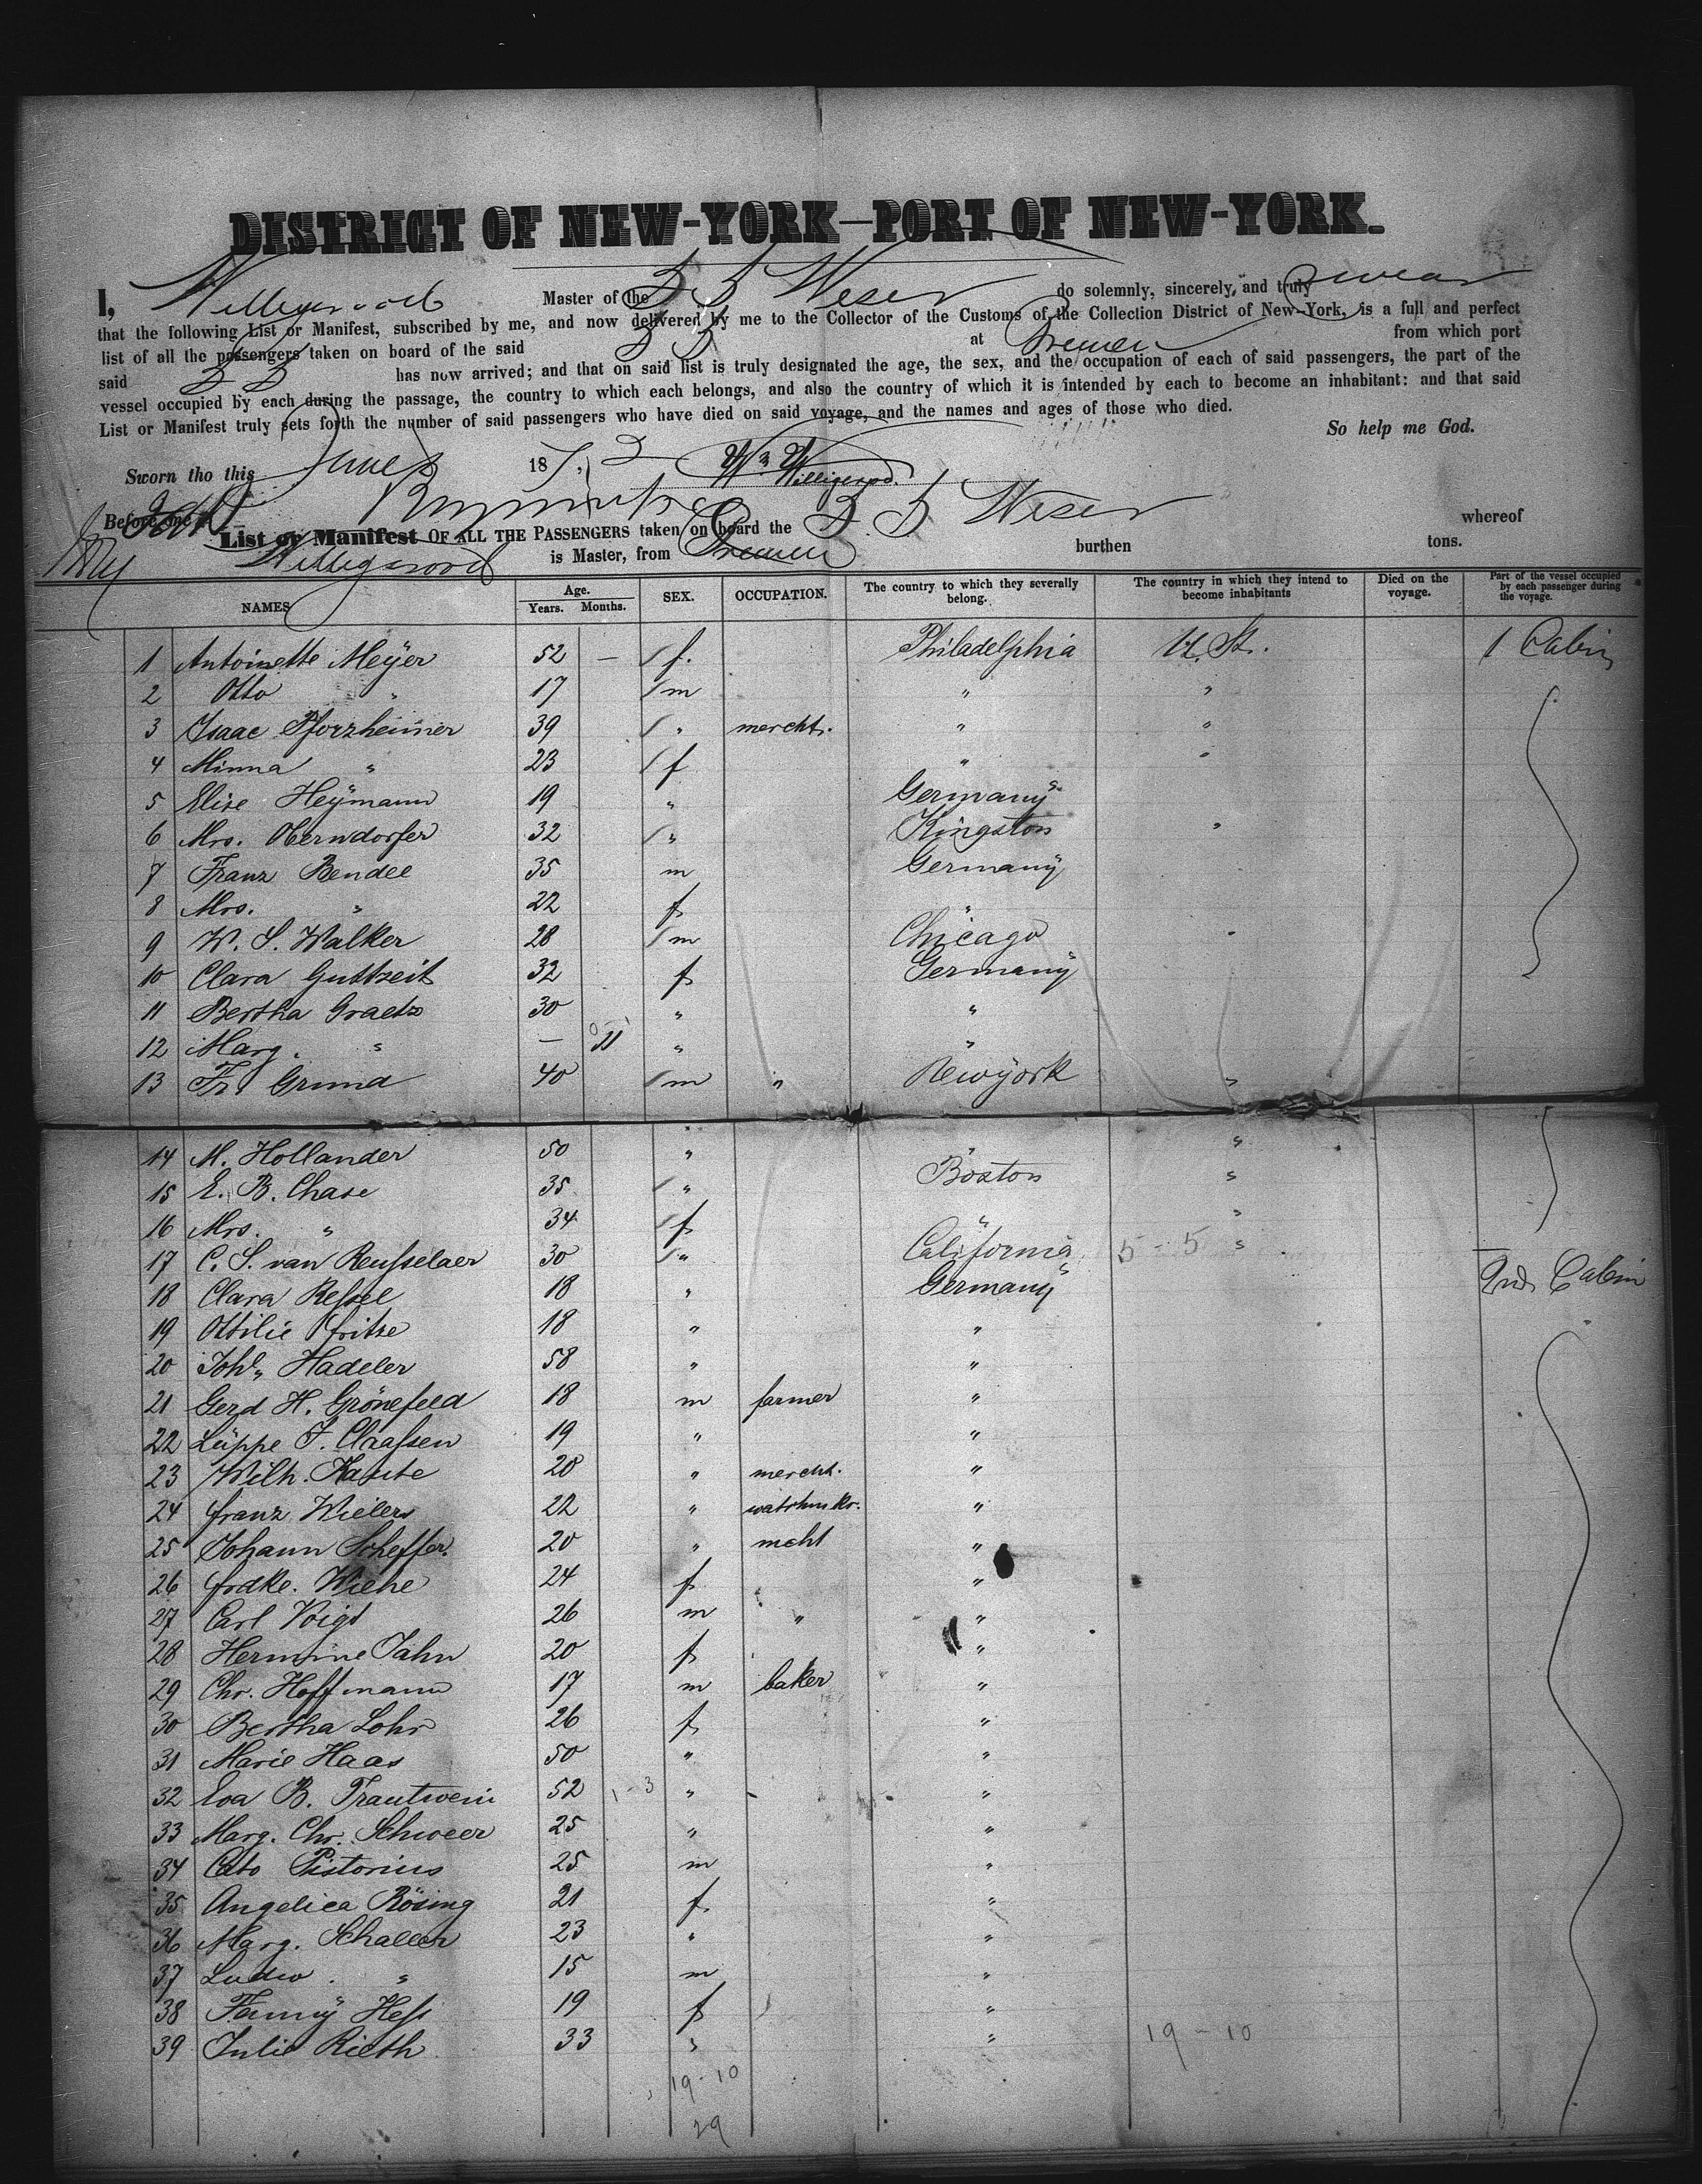 DISTRICT OF NEW-YORK—PORT OF NEW-YORK.
I, Willigerod Master of the S S Weser do solemnly, sincerely, and truly swear
that the following List or Manifest, subscribed by me, and now delivered by me to the Collector of the Customs of the Collection District of New-York, is a full and perfect
list of all the passengers taken on board of the said S S at Bremen from which port
said S S has now arrived; and that on said list is truly designated the age, the sex, and the occupation of each of said passengers, the part of the
vessel occupied by each during the passage, the country to which each belongs, and also the country of which it is intended by each to become an inhabitant: and that said
List or Manifest truly sets forth the number of said passengers who have died on said voyage, and the names and ages of those who died.
So help me God.
Sworn tho this June 187 Willigerod.
Before me
List or Manifest OF ALL THE PASSENGERS taken on board the S. S Weser whereof
Willigerod is Master, from Bremen burthen tons.
NAMES Age. Years. Months. SEX. OCCUPATION. The country to which they severally belong. The country in which they intend to become inhabitants Died on the voyage. Part of the vessel occupied by each passenger during the voyage.
1 Antoinette Meÿer 52 — f. Philadelphia U. St. 1 Cabin
2 Otto " 17 m " "
3 Isaac Pforzheimer 39 " mercht. " "
4 Minna " 23 f " "
5 Elise Heÿmann 19 " Germanÿ
6 Mrs. Oberndorfer 32 " Kingston "
7 Franz Bendel 35 m Germanÿ
8 Mrs. " 22 f "
9 W. S. Walker 28 m Chicago "
10 Clara Guttzeit 32 f Germanÿ
11 Bertha Graetz 30 " "
12 Marg. " — 11 " "
13 Fr. Grund 40 m " Newÿork "
14 M. Hollander 50 " " "
15 E. B. Chase 35 " Boston "
16 Mrs. " 34 f " "
17 C. S. van Reusselaer 30 " California 5 - 5 "
18 Clara Ressel 18 " Germanÿ 2nd Cabin
19 Ottilie Pfritze 18 " "
20 Joh. Hadeler 58 " "
21 Gerd H. Grönefeld 18 m farmer "
22 Lüppe F. Claassen 19 " "
23 Wilh. Kaute 20 " mercht. "
24 Franz Wielers 22 " watchmkr. "
25 Johann Scheffer. 20 " mcht "
26 Frdke. Wiehe 24 f "
27 Carl Voigt 26 m " "
28 Hermine Jahn 20 f "
29 Chr. Hoffmann 17 m baker "
30 Bertha Lohr 26 f "
31 Marie Haas 50 " "
32 Eva B. Trautwein 52 1 - 3 " "
33 Marg. Chr. Schweer 25 " "
34 Cato Pistorius 25 m "
35 Angelica Rösing 21 f. "
36 Marg. Schaller 23 " "
37 Ludw. " 15 m "
38 Fannÿ Hess 19 f "
39 Julie Rieth 33 " " 19 - 10
19 - 10
29